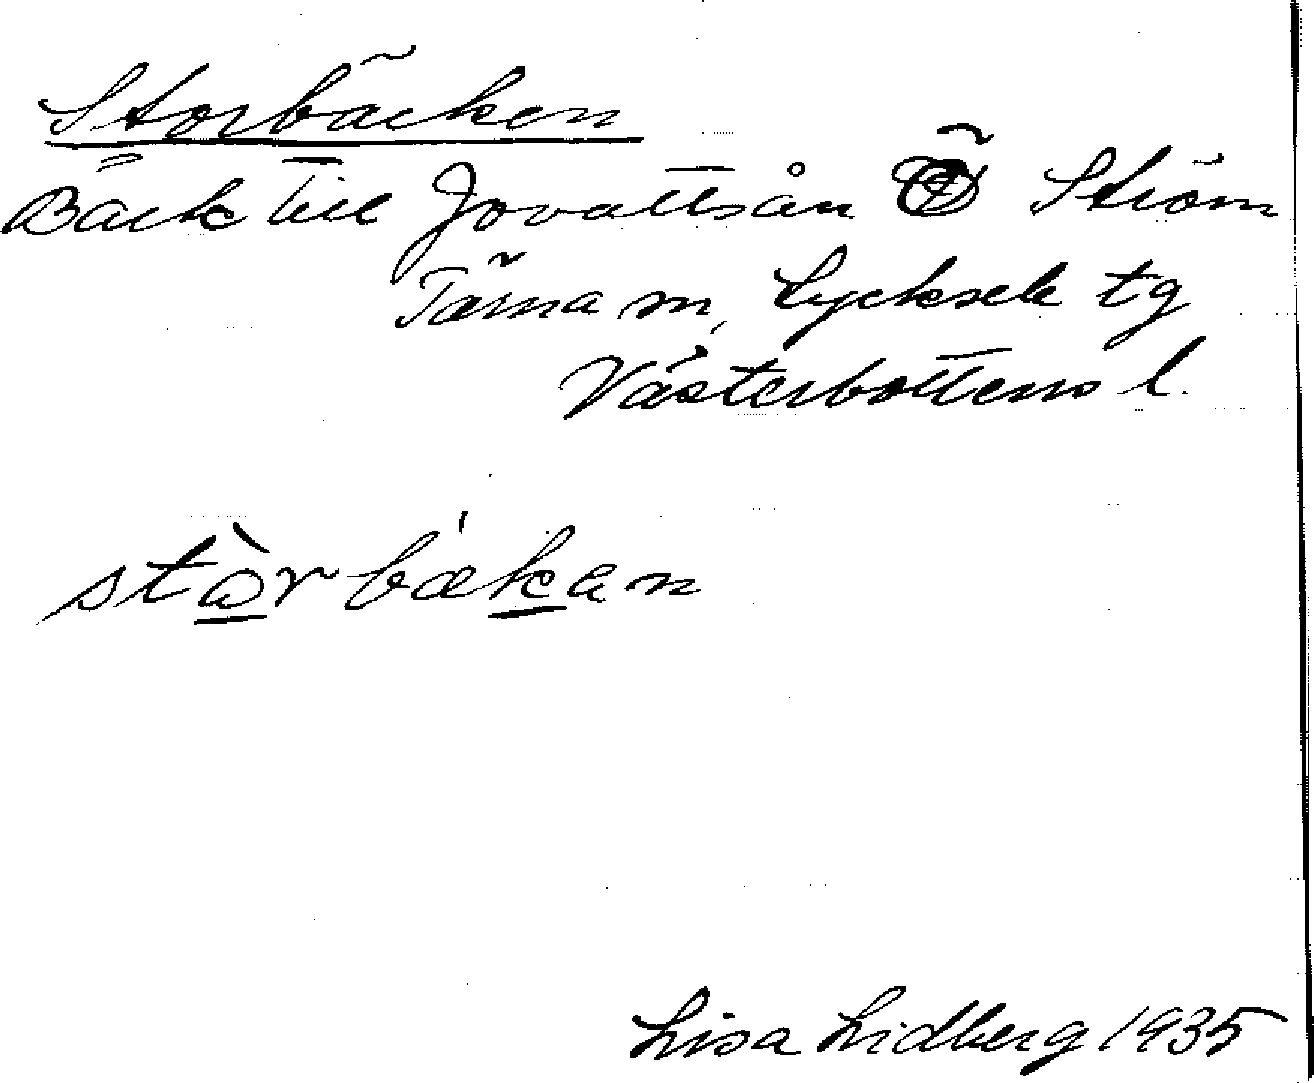 Storbäcken
Bäck till Jovattsån Ö Ström
Tärna sn, Lycksele tg
Västerbottens l.
stòrbækan
Lisa Lidberg 1935